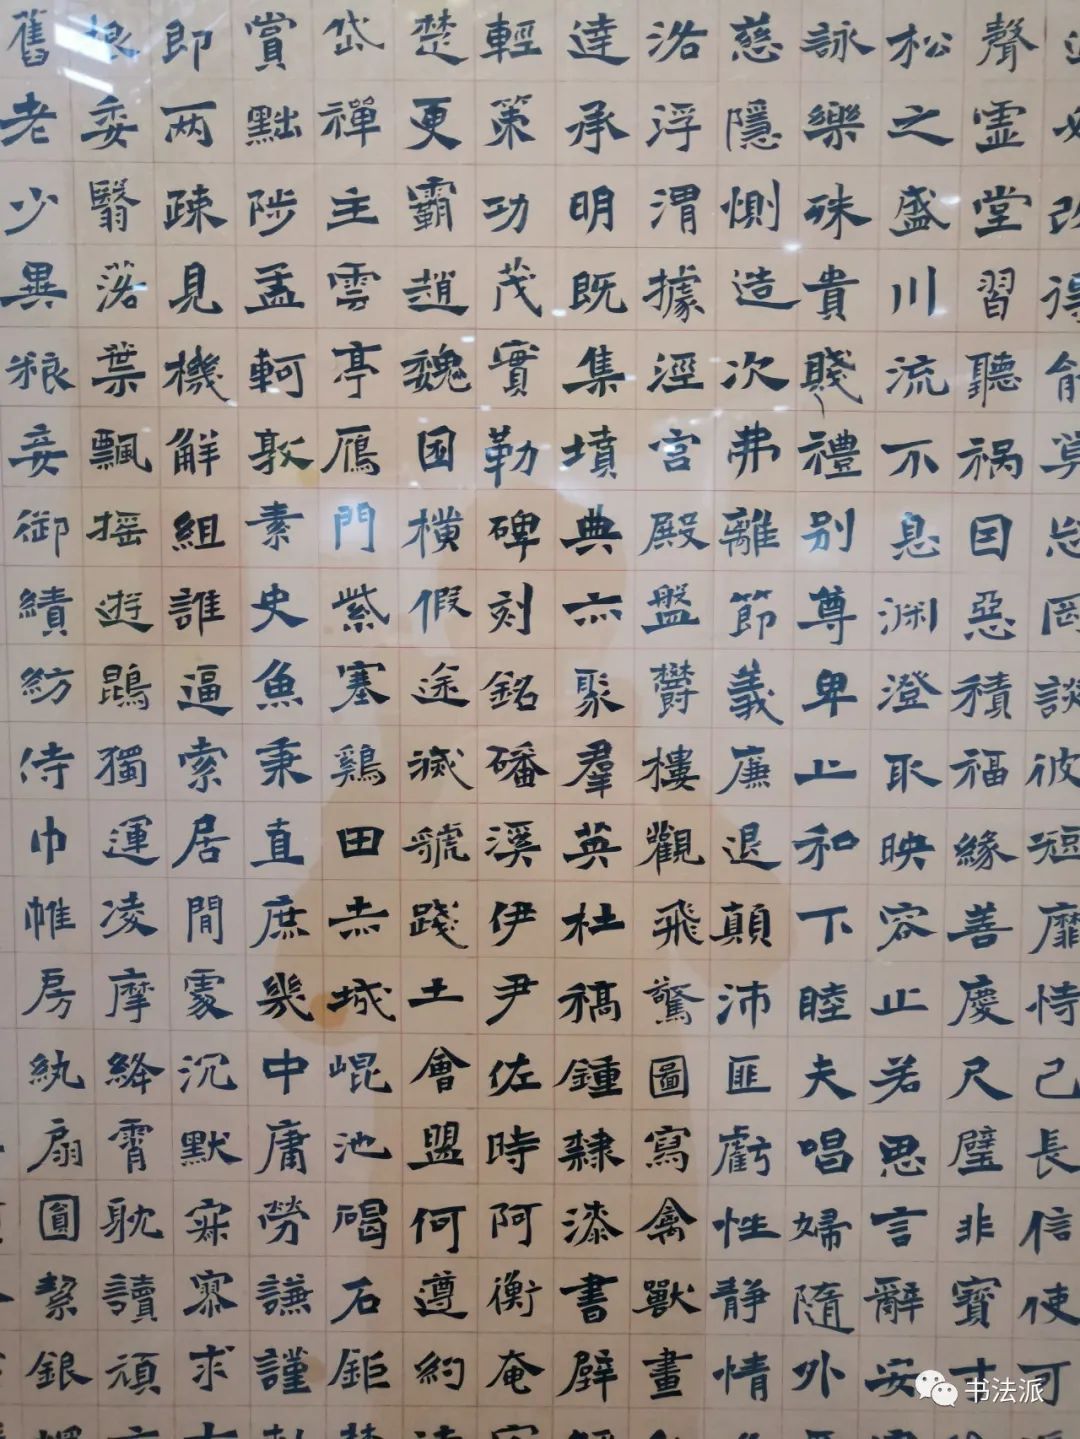 必改得能莫忘罔談彼短靡恃己長信使可
聲虛堂習聽禍因惡積福緣善慶尺璧非寶寸
松之盛川流不息渊澄取映容止若思言辭安
詠樂殊貴賤禮别尊卑上和下睦夫唱婦隨外
慈隱惻造次弗離節義廉退顛沛匪虧性静情
洛浮渭據涇宮殿盤鬱樓觀飛驚圖寫禽獸畫
達承明既集墳典亦聚羣英杜稿鍾隸漆書壁
輕策功茂實勒碑刻銘磻溪伊尹佐時阿衡奄
楚更霸趙魏困橫假途滅虢踐土會盟何遵約
岱禪主雲亭雁門紫塞鷄田赤城崐池碣石鉅
賞黜陟孟軻敦素史魚秉直庶幾中庸勞謙謹
即两疎見機解組誰逼索居閒處沉默寂寥求
根委翳落葉飄摇遊鵾獨運凌摩絳霄耽讀頑
舊老少異粮妾御績紡侍巾帷房紈扇圓絜銀
书法派